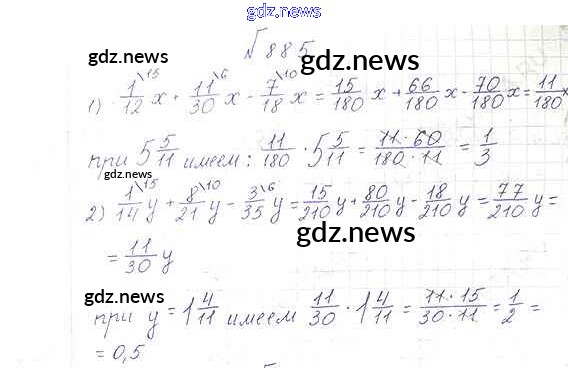 gdz.news
№885
gdz.news
gdz.news
1) 1/12^\15 x + 11/30^\6 x - 7/18^\10 x = 15/180 x + 66/180 x - 70/180 x = 11/180 x
при 5 5/11 имеем: 11/180 · 5 5/11 = 11·60/180·11 = 1/3
gdz.news
2) 1/14^\15 y + 8/21^\10 y - 3/35^\6 y = 15/210 y + 80/210 y - 18/210 y = 77/210 y =
gdz.news
= 11/30 y
gdz.news
gdz.news
при y = 1 4/11 имеем 11/30 · 1 4/11 = 11·15/30·11 = 1/2 =
= 0,5